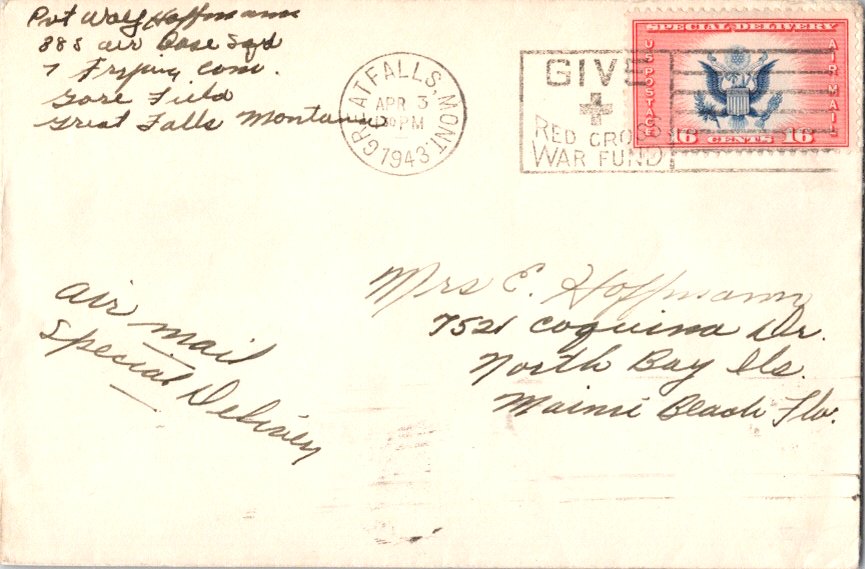 Pvt Wolf Hoffmann
885 air Base Sqd
7 Frying Com.
Gore Field
Great Falls Montana
GREAT FALLS, MONT.
APR 3
PM
1943
GIVE
RED CROSS
WAR FUND
SPECIAL DELIVERY
U S POSTAGE
AIR MAIL
16 CENTS 16
air mail
Special Delivery
Mrs E. Hoffmann
7521 Coquina Dr.
North Bay Ils.
Maimi Beach Fla.